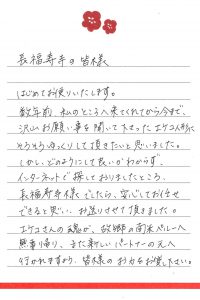 長福寿寺の皆様
はじめてお便りいたします。
数年前、私のところへ来てくれてから今まで、
沢山お願い事を聞いて下さったエケコ人形に
そろそろゆっくりして頂きたいと思いました。
しかし、どのようにして良いかわからず、
インターネットで探しておりましたところ、
長福寿寺様でしたら、安心してお任せ
できると思い、お送りさせて頂きました。
エケコさんの魂が、故郷の南米ペルーへ
無事帰り、また新しいパートナーの元へ
行かれますよう、皆様のお力をお貸し下さい。